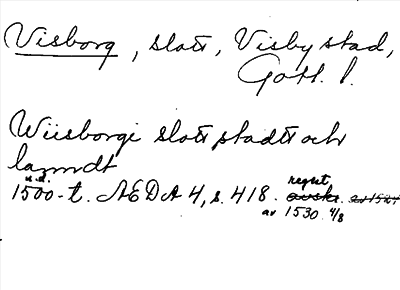 Visborg, slott, Visby stad,
Gotl. l.
Wiisborgi slott stadtt och
lanndt
u.d.
1500-t. AEDA 4, s. 418. regest
av 1530 4/8